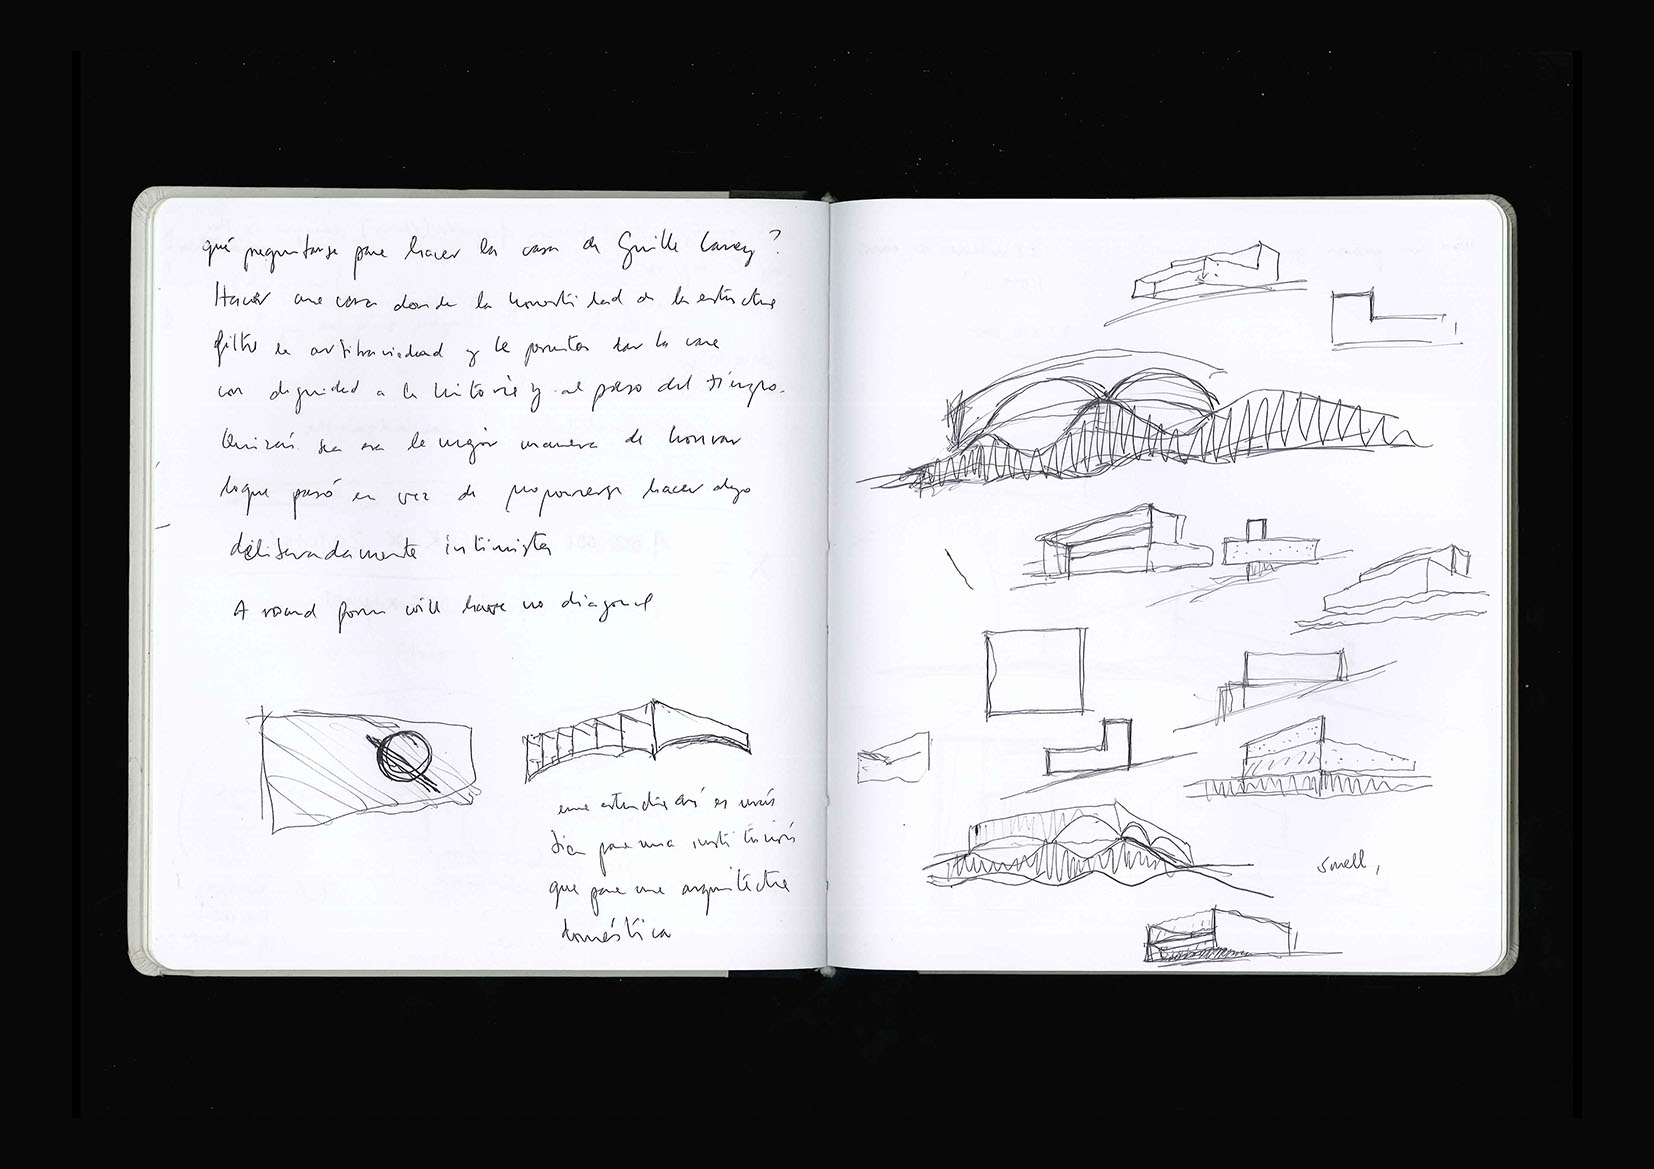 qué preguntarse para hacer la casa de Guille
Hacer una casa donde la honestidad de la estructura
filtre la arbitrariedad y le permita dar la cara
con dignidad a la historia y al paso del tiempo.
Quizás sea esa la mejor manera de honrar
lo que pasó en vez de proponerse hacer algo
deliberadamente intimista
A round form will have no diagonal
una así es más
para una institución
que para una arquitectura
doméstica
smell,